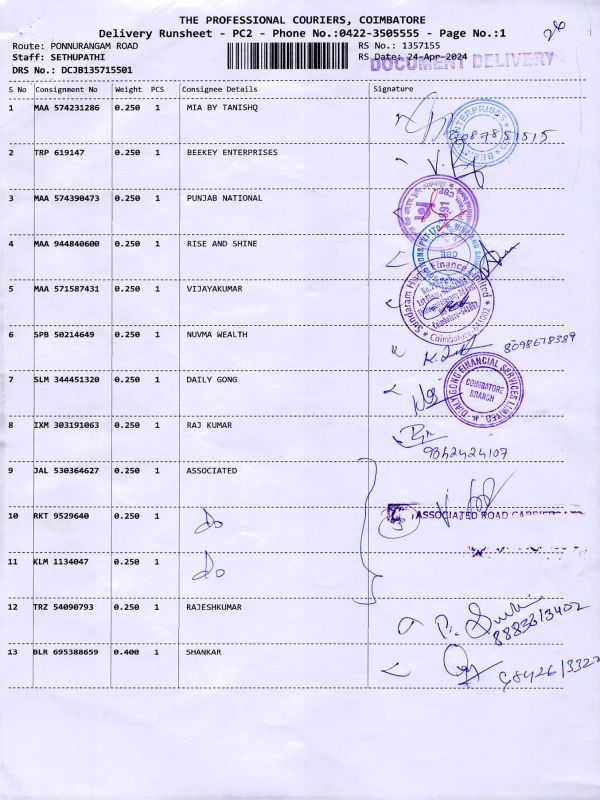 THE PROFESSIONAL COURIERS, COIMBATORE
Delivery Runsheet - PC2 - Phone No.:0422-3505555 - Page No.:1
Route: PONNURANGAM ROAD RS No.: 1357155
Staff: SETHUPATHI RS Date: 24-Apr-2024
DOCUMENT DELIVERY
DRS No.: DCJB135715501
S No Consignment No Weight PCS Consignee Details Signature
1 MAA 574231286 0.250 1 MIA BY TANISHQ
2 TRP 619147 0.250 1 BEEKEY ENTERPRISES
3 MAA 574390473 0.250 1 PUNJAB NATIONAL
4 MAA 944840600 0.250 1 RISE AND SHINE
5 MAA 571587431 0.250 1 VIJAYAKUMAR
Finance Limited
Coimbatore-641002
6 SPB 50214649 0.250 1 NUVMA WEALTH
8098678389
7 SLM 344451320 0.250 1 DAILY GONG
DAILYGONG FINANCIAL SERVICES LIMITED
COIMBATORE
BRANCH
8 IXM 303191063 0.250 1 RAJ KUMAR
9842424107
9 JAL 530364627 0.250 1 ASSOCIATED
10 RKT 9529640 0.250 1 do
3 ASSOCIATED ROAD CARRIERS
11 KLM 1134047 0.250 1 do
12 TRZ 54090793 0.250 1 RAJESHKUMAR
8883813402
13 BLR 695388659 0.400 1 SHANKAR